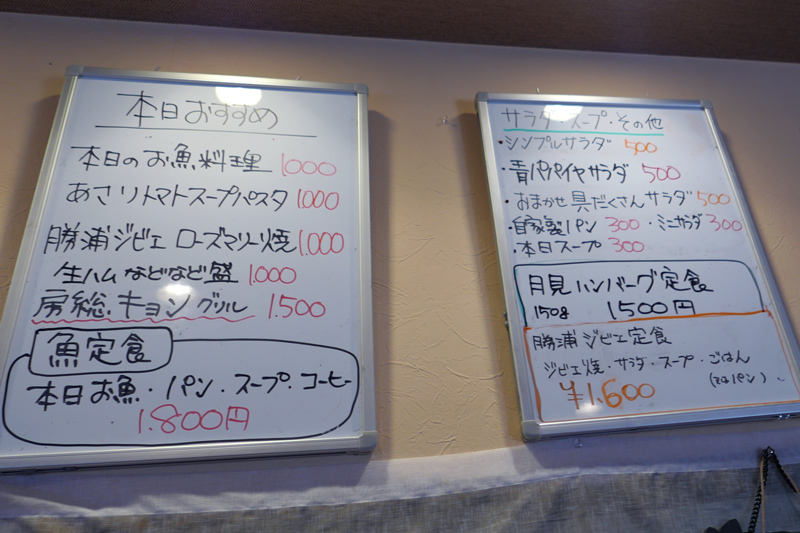 本日おすすめ
本日のお魚料理 1,000
あさりトマトスープパスタ 1,000
勝浦ジビエ ローズマリー焼 1,000
生ハムなどなど盛 1,000
房総.キョングリル 1.500
魚定食
本日お魚・パン・スープ・コーヒー
1.800円
サラダ・スープ・その他
・シンプルサラダ 500
・青パパイヤサラダ 500
・おまかせ具だくさんサラダ 500
・自家製パン 300 ・ミニサラダ 300
・本日スープ 300
月見ハンバーグ定食
150g 1500円
勝浦ジビエ定食
ジビエ焼・サラダ・スープ・ごはん
(又はパン)
¥1.600